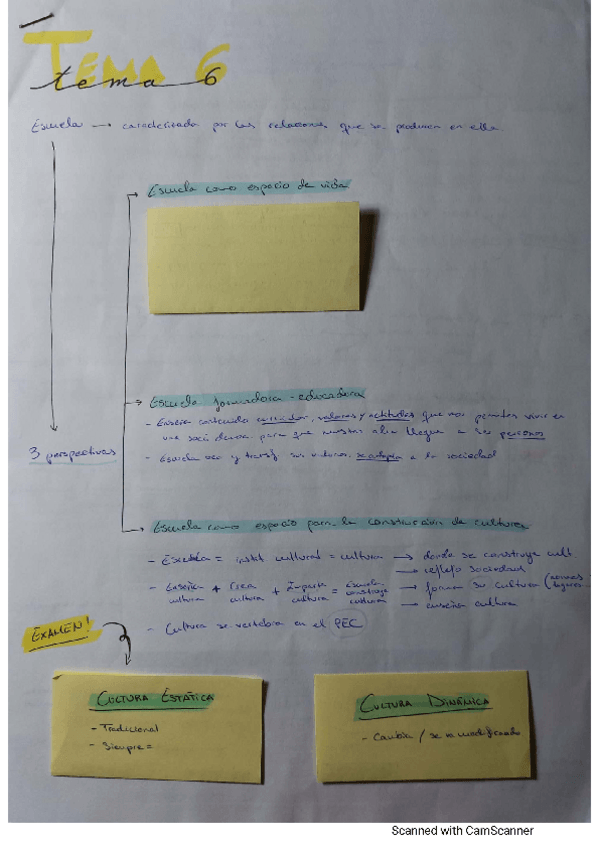 TEMA 6
tema 6
Escuela → caracterizada por las relaciones que se producen en ella
Escuela como espacio de vida
Escuela formadora-educadora
- Enseña contenido curricular, valores y actitudes que nos permiten vivir en
una soci para que nuestros alum lleguen a ser personas
3 perspectivas
- Escuela crea y transf sus valores, se adapta a la sociedad
Escuela como espacio para la construcción de culturas
- Escuela = instit. cultural = cultura → donde se construye cult.
→ reflejo sociedad
- Enseña cultura + Crea cultura + Imparte cultura = Escuela construye cultura → forma su cultura (normas
→ enseña cultura
- Cultura se vertebra en el PEC
EXAMEN!
CULTURA ESTÁTICA
- Tradicional
- Siempre =
CULTURA DINÁMICA
- Cambia / se va modificando
Scanned with CamScanner